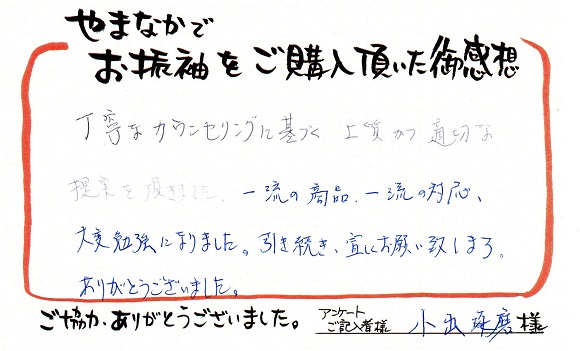 やまなかで
お振袖をご購入頂いた御感想
丁寧なカウンセリングに基づく上質かつ適切な
提案を頂きました。一流の商品、一流の対応、
大変勉強になりました。引き続き、宜しくお願い致します。
ありがとうございました。
ご協力、ありがとうございました。 アンケートご記入者様 小出琢磨様